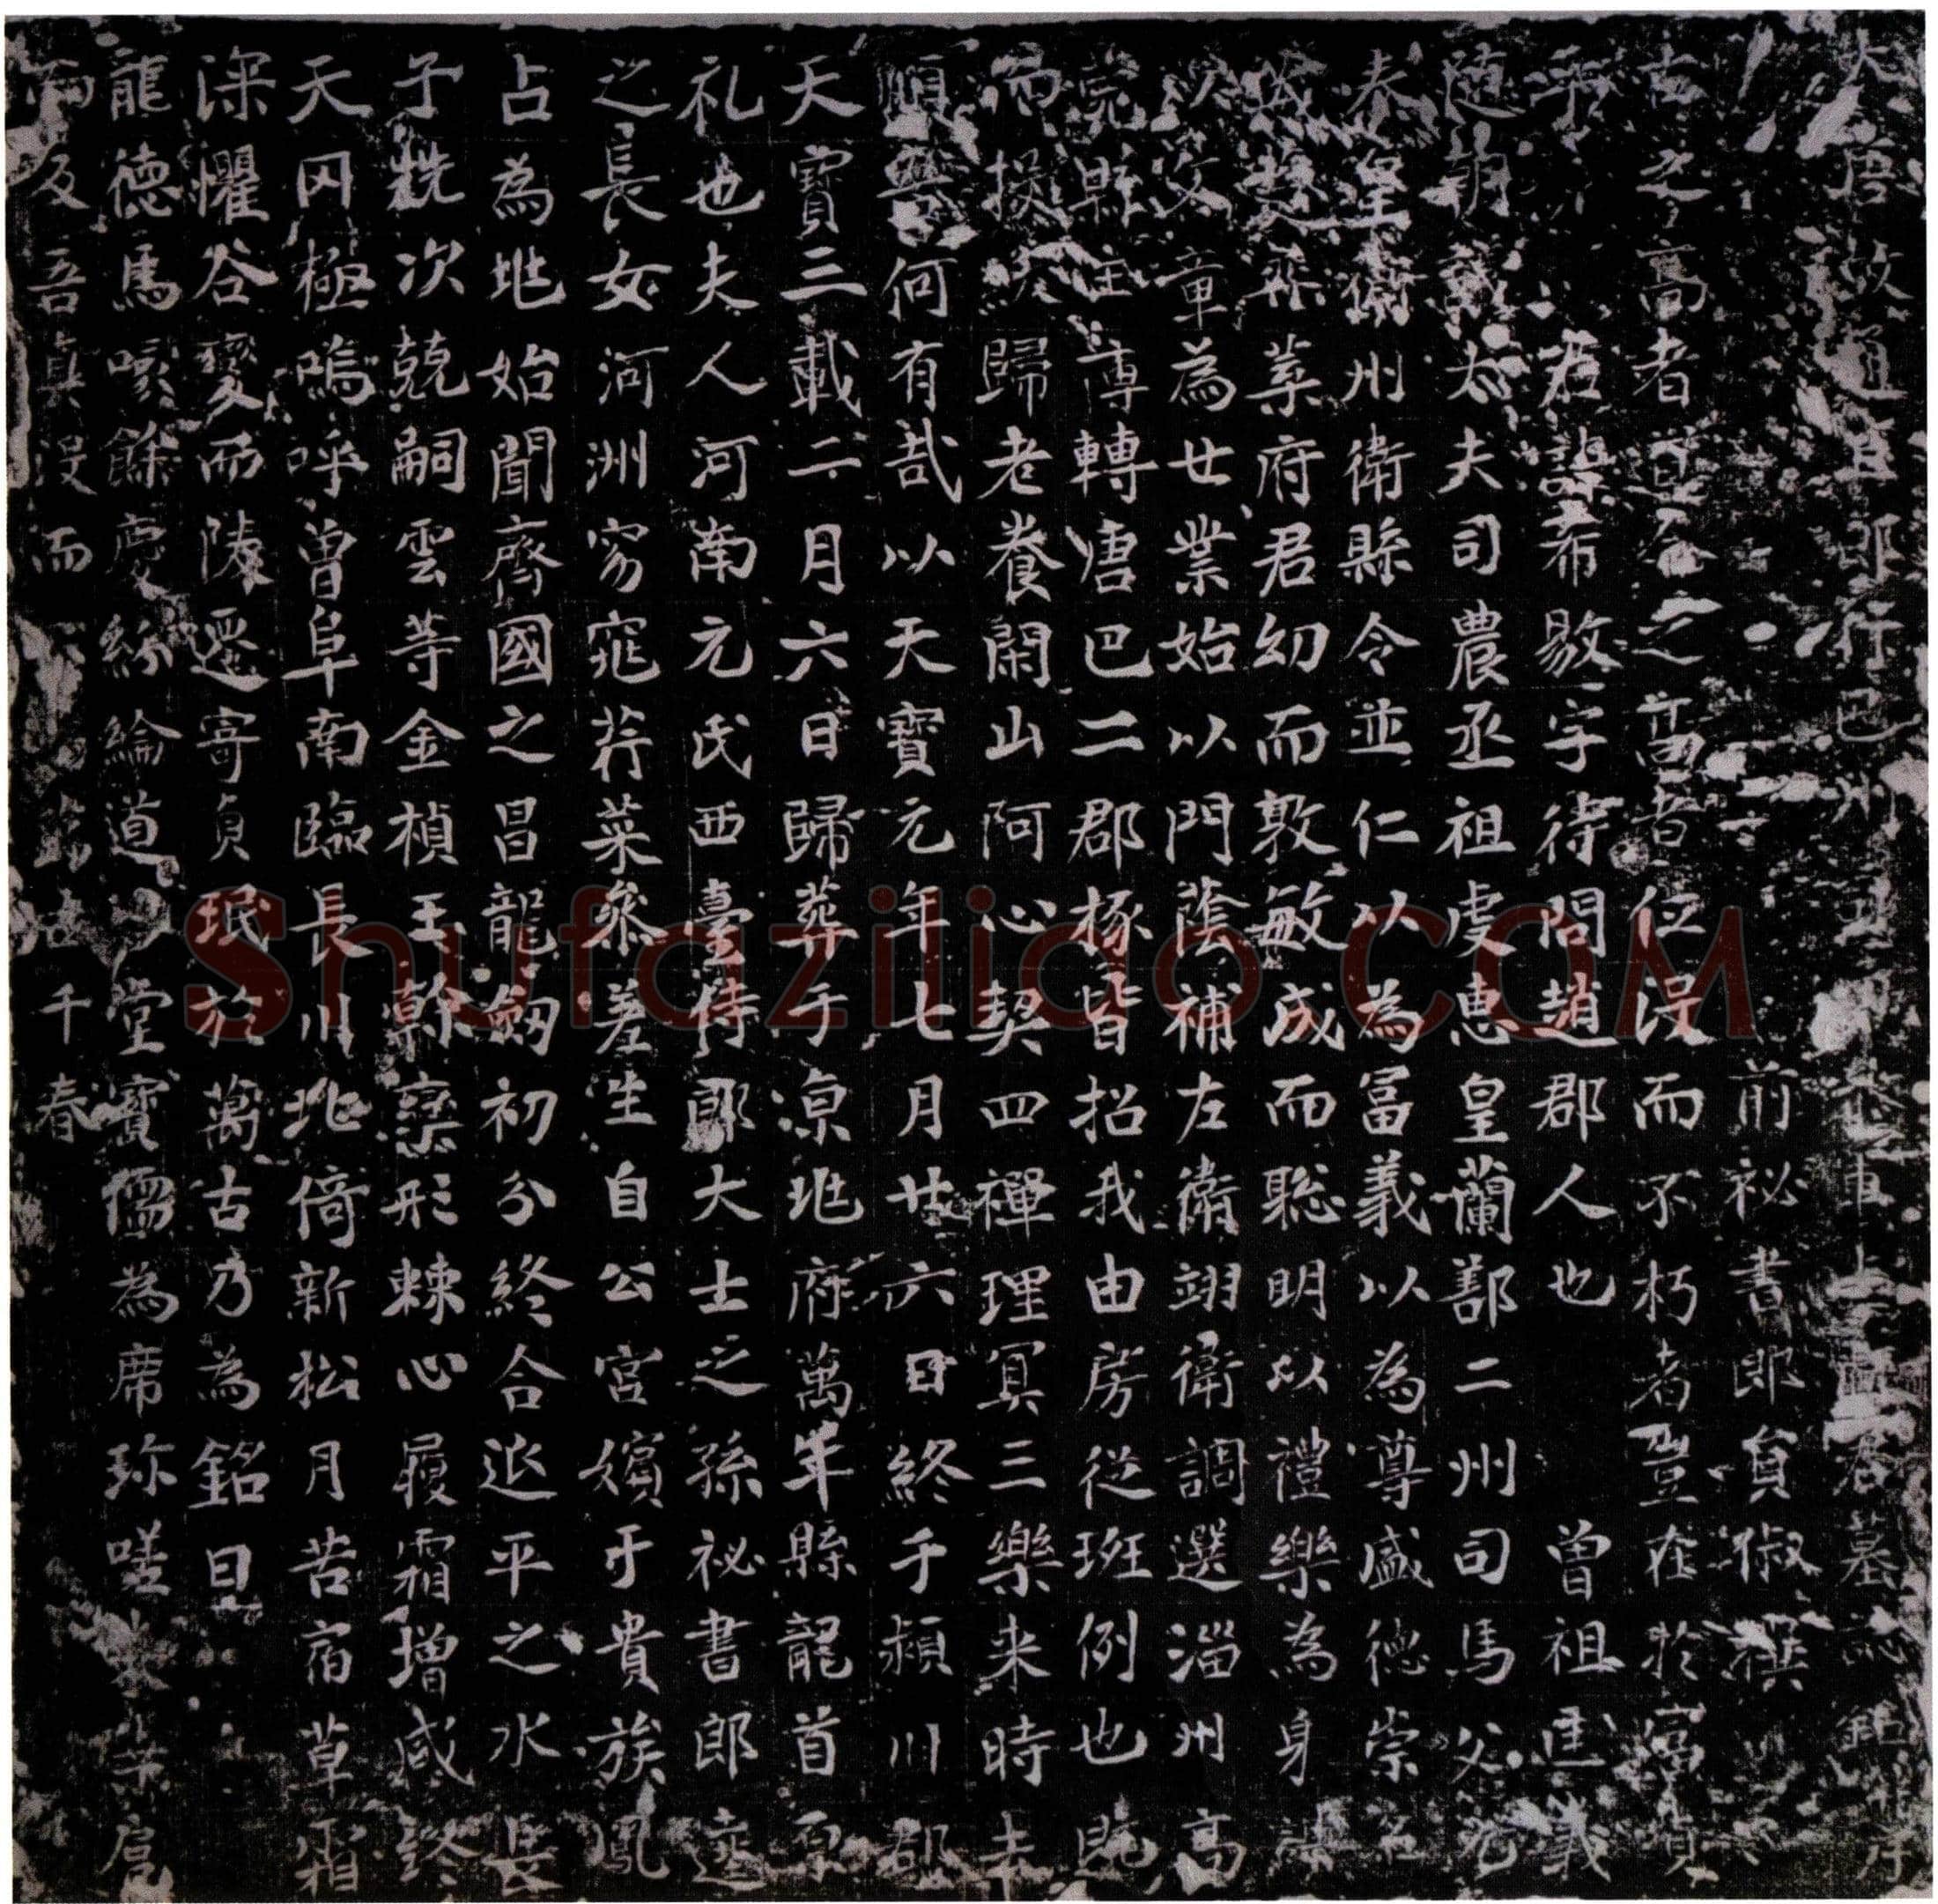 大唐故通直郎行巴州司馬上君墓誌銘并序
前祕書郎負俶撰
古之高者曰之高者位没而不朽者豈在於富
乎君諱希敭字待問趙郡人也曾祖匡義
随朝太夫司農丞祖虔惠皇蘭鄯二州司馬父
泰皇衛州衛縣令並仁以為富義以為尊盛德崇名
葉府君幼而敦敏成而聡明以禮樂為身
以文章為廿業始以門蔭補左衛翊衛調選淄州高
縣主博轉唐巴二郡掾皆招我由房従班例也既
而操歸老養閑山阿心契四禪理冥三樂来時未
順何有哉以天寶元年七月廿六日終于潁川郡
天寶三載二月六日歸葬于京地府萬年縣龍首原
礼也夫人河南元氏西臺侍郎大士之孫祕書郎
之長女河洲窈窕荇菜叅差生自公宮嬪于貴族鳳
占為地始聞齊國之昌龍劒初分終合延平之水長
子㲘次兢嗣雲等金楨玉幹欒形棘心履霜增感終
天罔極嗚呼曾阜南臨長川北倚新松月苦宿草霜
深懼谷變而陵遷寄貞珉於萬古乃為銘曰
龍德馬喙餘慶紛綸道堂寶儒為席珎嗟
而反吾真没而千春
Shufaziliao.COM